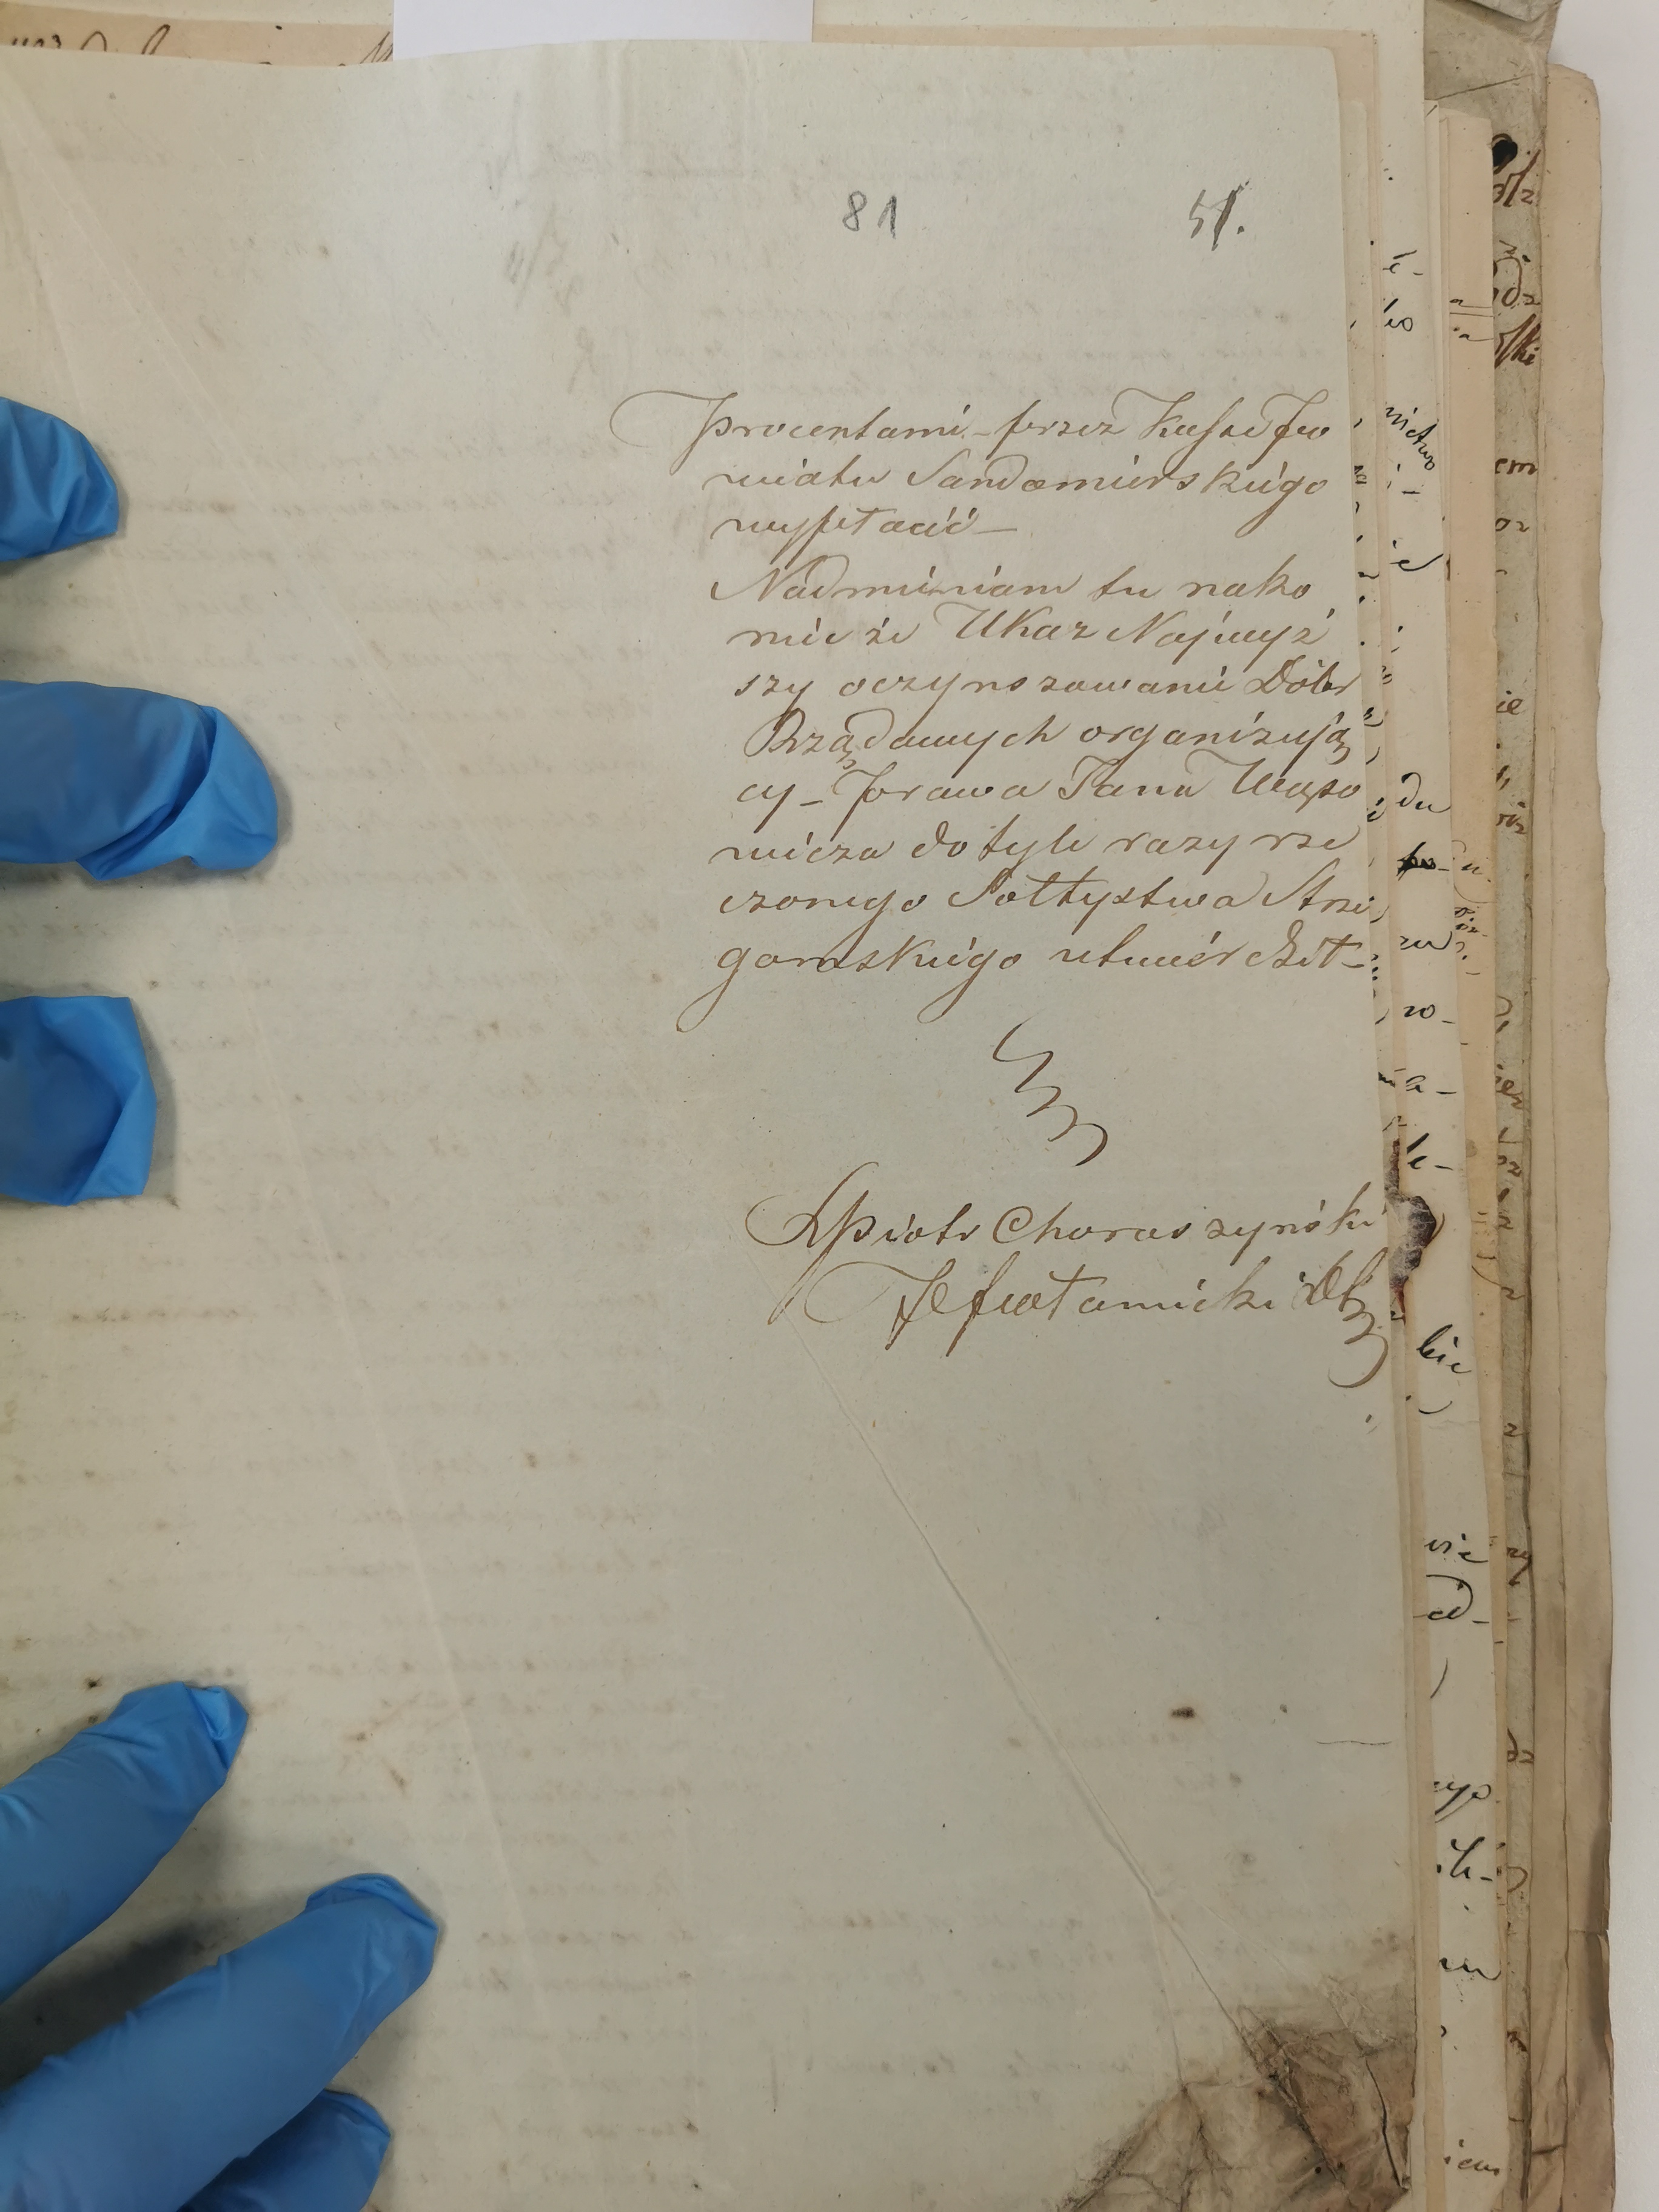 81 51.
Procentami - przez Kassę Po
wiatu Sandomierskiego
wypłacić -
Nadmieniam tu nako
niec że Ukaz Najwyż
szy oczynszowanie Dóbr
Rządowych organizują
cy - Prawa Pana Wąso
wicza do tyle razy rze
czonego Sołtystwa Strze
gomskiego utwierdził -
Piotr Choroszyński